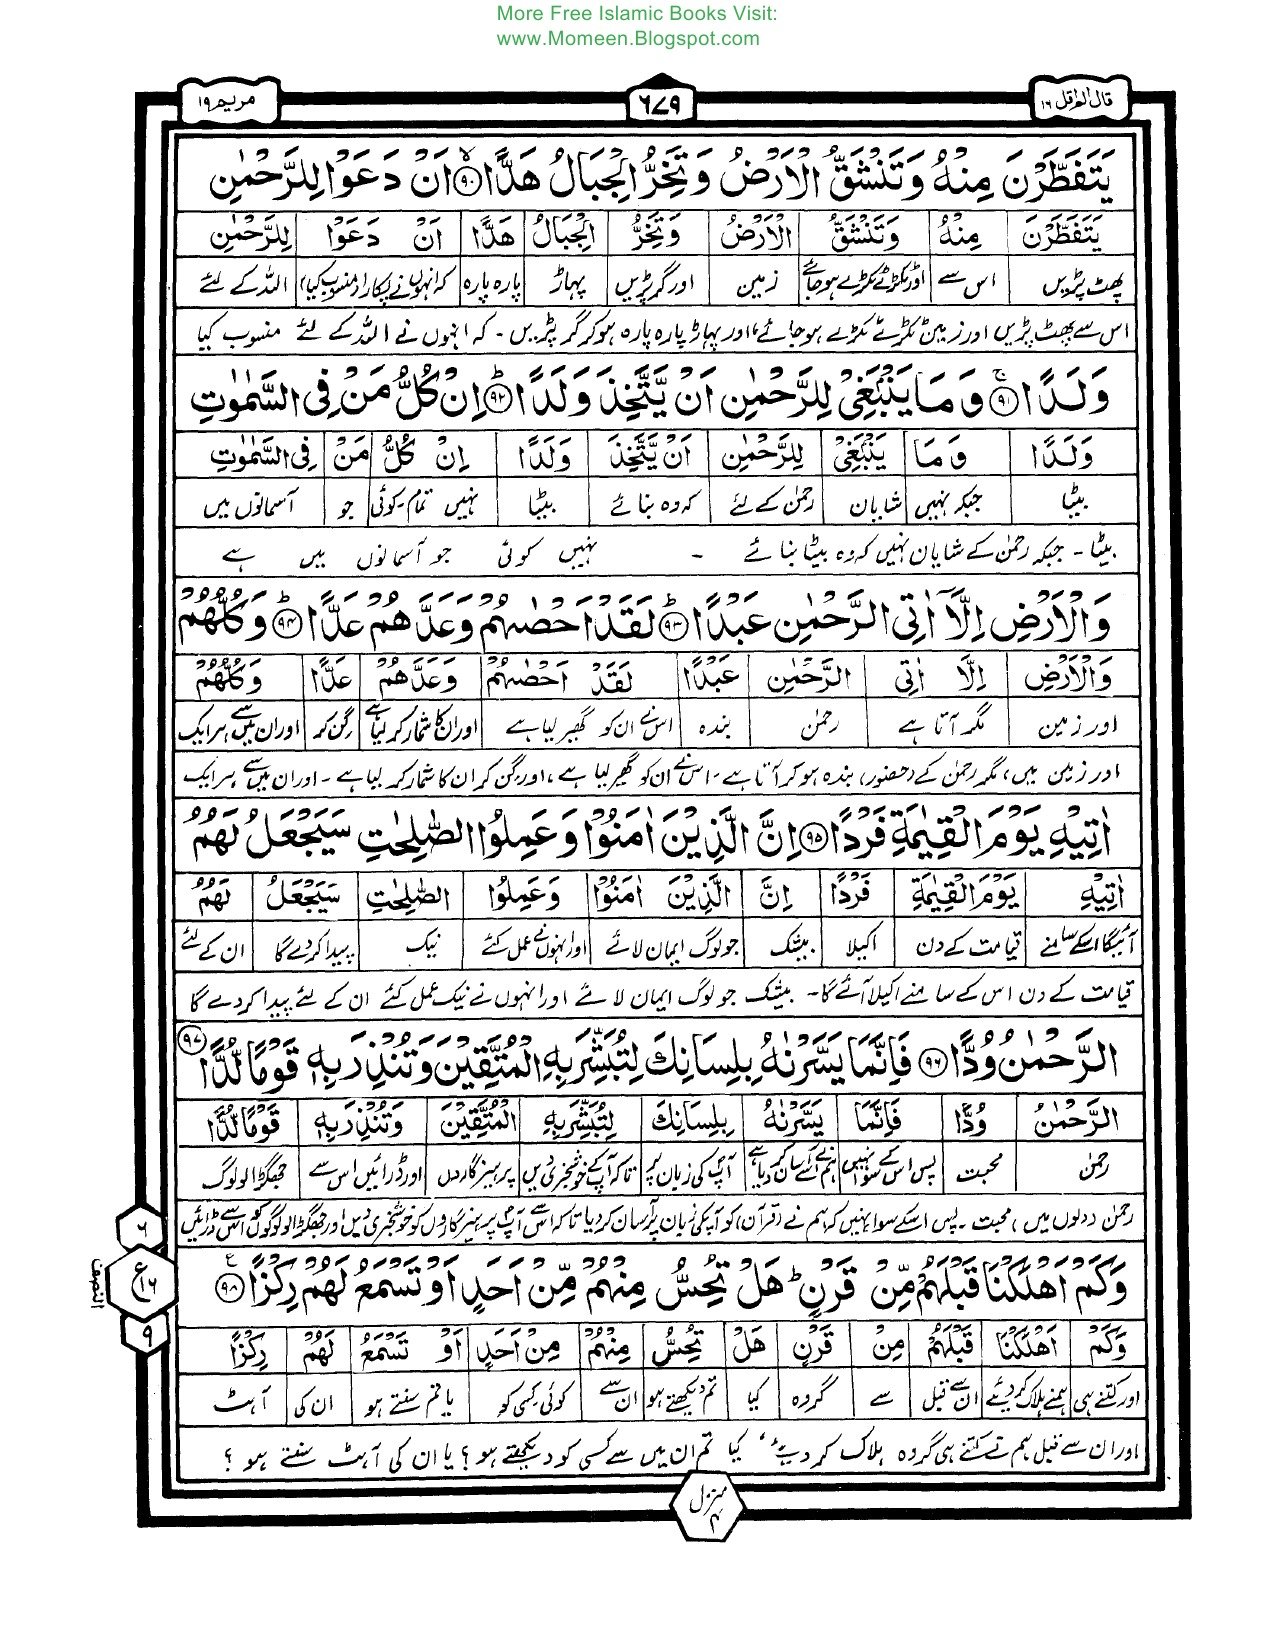 More Free Islamic Books Visit:
www.Momeen.Blogspot.com
قال الم اقل ۱۶
۶۷۹
مریم ۱۹
يَتَفَطَّرْنَ مِنْهُ وَتَنْشَقُّ الْاَرْضُ وَتَخِرُّ الْجِبَالُ هَدًّا ۙ۹۰ اَنْ دَعَوْا لِلرَّحْمٰنِ
يَتَفَطَّرْنَ مِنْهُ وَتَنْشَقُّ الْاَرْضُ وَتَخِرُّ الْجِبَالُ هَدًّا اَنْ دَعَوْا لِلرَّحْمٰنِ
پھٹ پڑیں اس سے اور ٹکڑے ٹکڑے ہوجائے زمین اور گرپڑیں پہاڑ پارہ پارہ کہ انہوں نے پکارا (منسوب کیا) اللہ کے لئے
اس سے پھٹ پڑیں اور زمین ٹکڑے ٹکڑے ہوجائے، اور پہاڑ پارہ پارہ ہوکر گر پڑیں ۔ کہ انہوں نے اللہ کے لئے منسوب کیا
وَلَدًا ۚ۹۱ وَمَا يَنْۢبَغِيْ لِلرَّحْمٰنِ اَنْ يَّتَّخِذَ وَلَدًا ۭ۹۲ اِنْ كُلُّ مَنْ فِي السَّمٰوٰتِ
وَلَدًا وَمَا يَنْۢبَغِيْ لِلرَّحْمٰنِ اَنْ يَّتَّخِذَ وَلَدًا اِنْ كُلُّ مَنْ فِي السَّمٰوٰتِ
بیٹا جبکہ نہیں شایان رحمٰن کے لئے کہ وہ بنائے بیٹا نہیں تمام-کوئی جو آسمانوں میں
بیٹا ۔ جبکہ رحمٰن کے شایان نہیں کہ وہ بیٹا بنائے ۔ نہیں کوئی جو آسمانوں میں ہے
وَالْاَرْضِ اِلَّآ اٰتِي الرَّحْمٰنِ عَبْدًا ۭ۹۳ لَقَدْ اَحْصٰىهُمْ وَعَدَّهُمْ عَدًّا ۭ۹۴ وَكُلُّهُمْ
وَالْاَرْضِ اِلَّا اٰتِي الرَّحْمٰنِ عَبْدًا لَقَدْ اَحْصٰىهُمْ وَعَدَّهُمْ عَدًّا وَكُلُّهُمْ
اور زمین مگر آتا ہے رحمٰن بندہ اس نے ان کو گھیر لیا ہے اور ان کا شمار کر لیا ہے گن کر اور ان میں سے ہر ایک
اور زمین میں، مگر رحمٰن کے (حضور) بندہ ہوکر آتا ہے ۔ اس نے ان کو گھیر لیا ہے، اور گن کر ان کا شمار کر لیا ہے ۔ اور ان میں سے ہر ایک
اٰتِيْهِ يَوْمَ الْقِيٰمَةِ فَرْدًا ۹۵ اِنَّ الَّذِيْنَ اٰمَنُوْا وَعَمِلُوا الصّٰلِحٰتِ سَيَجْعَلُ لَهُمُ
اٰتِيْهِ يَوْمَ الْقِيٰمَةِ فَرْدًا اِنَّ الَّذِيْنَ اٰمَنُوْا وَعَمِلُوا الصّٰلِحٰتِ سَيَجْعَلُ لَهُمُ
آئیگا اسکے سامنے قیامت کے دن اکیلا بیشک جو لوگ ایمان لائے اور انہوں نے عمل کئے نیک پیدا کردے گا ان کے لئے
قیامت کے دن اس کے سامنے اکیلا آئے گا ۔ بیشک جو لوگ ایمان لائے اور انہوں نے نیک عمل کئے ان کے لئے پیدا کردے گا
الرَّحْمٰنُ وُدًّا ۹۶ فَاِنَّمَا يَسَّرْنٰهُ بِلِسَانِكَ لِتُبَشِّرَ بِهِ الْمُتَّقِيْنَ وَتُنْذِرَ بِهٖ قَوْمًا لُّدًّا ۹۷
الرَّحْمٰنُ وُدًّا فَاِنَّمَا يَسَّرْنٰهُ بِلِسَانِكَ لِتُبَشِّرَ بِهِ الْمُتَّقِيْنَ وَتُنْذِرَ بِهٖ قَوْمًا لُّدًّا
رحمٰن محبت پس اس کے سوا نہیں ہم نے اسے آسان کردیا ہے آپ کی زبان پر تاکہ آپ خوشخبری دیں پرہیزگاروں اور ڈرائیں اس سے جھگڑالو لوگ
رحمٰن (دلوں میں) محبت ۔ پس اسکے سوا نہیں کہ ہم نے (قرآن) کو آپکی زبان پر آسان کردیا تاکہ اس سے آپ پرہیزگاروں کو خوشخبری دیں اور جھگڑالو لوگوں کو اس سے ڈرائیں
وَكَمْ اَهْلَكْنَا قَبْلَهُمْ مِّنْ قَرْنٍ ۭ هَلْ تُحِسُّ مِنْهُمْ مِّنْ اَحَدٍ اَوْ تَسْمَعُ لَهُمْ رِكْزًا ۹۸
وَكَمْ اَهْلَكْنَا قَبْلَهُمْ مِنْ قَرْنٍ هَلْ تُحِسُّ مِنْهُمْ مِنْ اَحَدٍ اَوْ تَسْمَعُ لَهُمْ رِكْزًا
اور کتنے ہی ہم نے ہلاک کردیے ان سے قبل سے گروہ کیا تم دیکھتے ہو ان سے کوئی کسی کو یا تم سنتے ہو ان کی آہٹ
اور ان سے قبل ہم نے کتنے ہی گروہ ہلاک کر دیئے، کیا تم ان میں سے کسی کو دیکھتے ہو؟ یا ان کی آہٹ سنتے ہو؟
۶
ع
۱۶
۹
النصف
منزل ۴